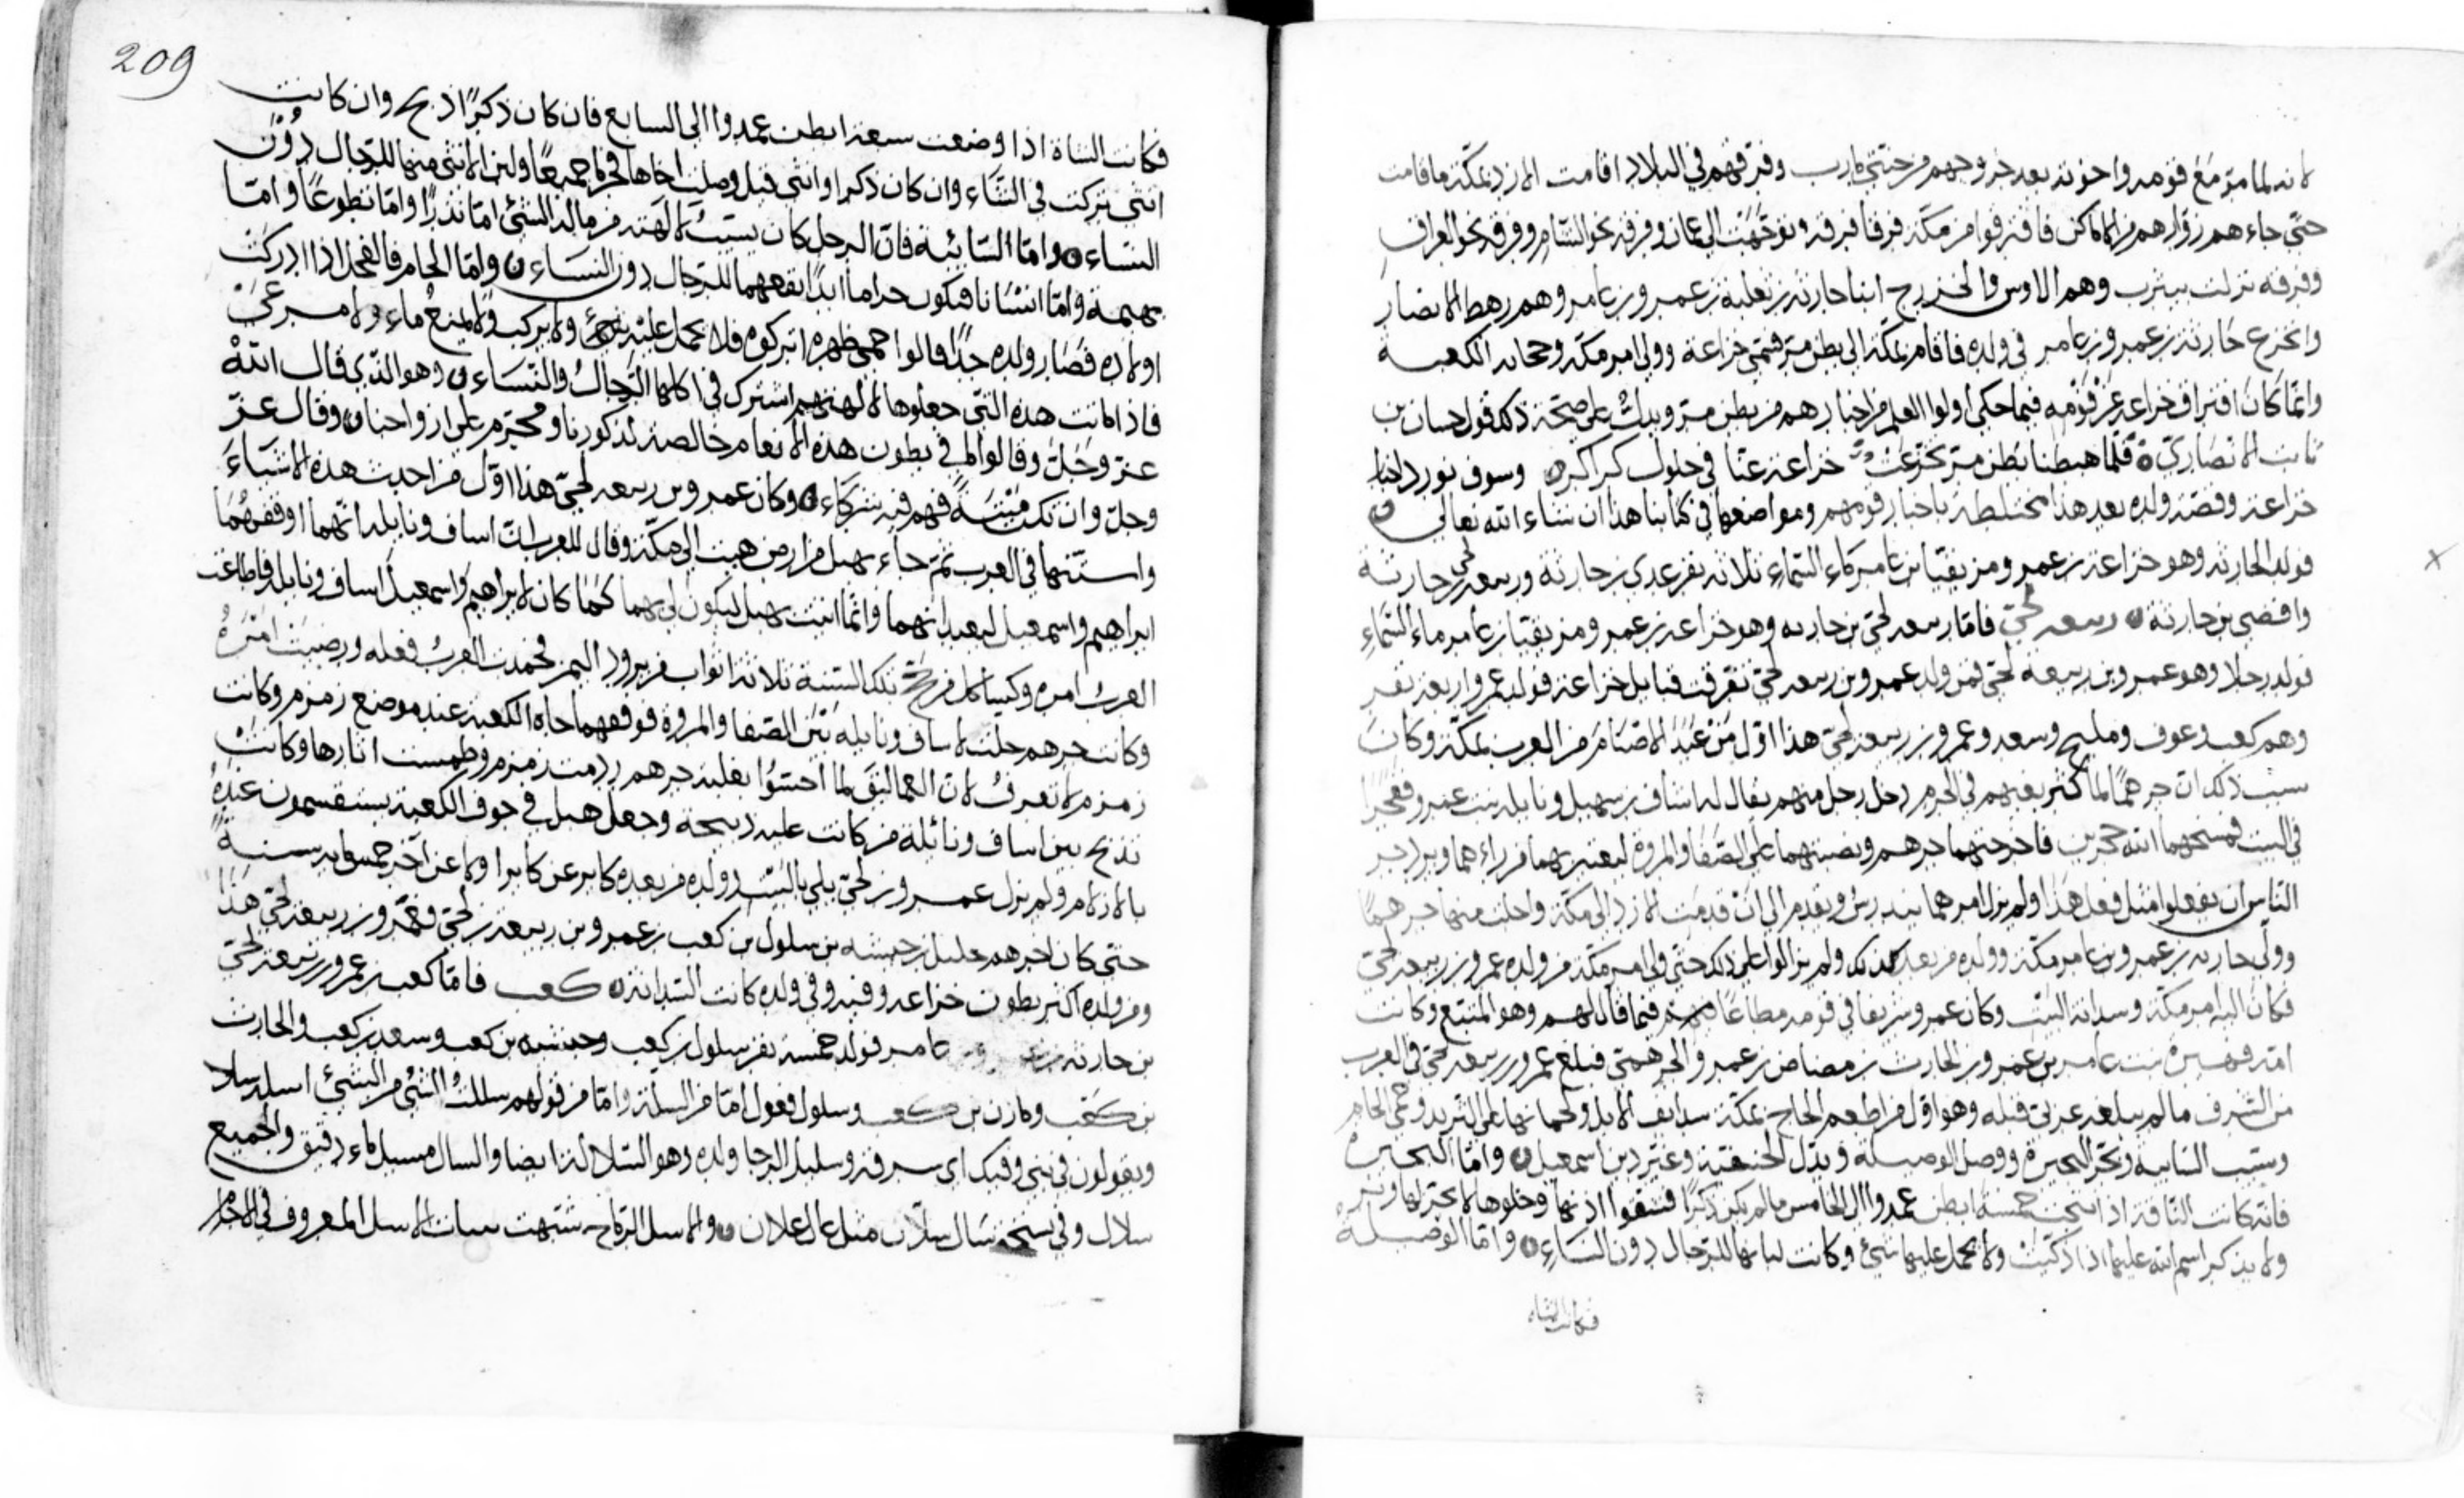 لانه لما مر مع قومه واخوته بعد خروجهم من جنتي مارب وفرقهم في البلاد اقامت الازد بمكة ما اقامت
حتى جاءهم روادهم من الاماكن فافترقوا من مكة فرقا فرقة توجهت الى عمان وفرقة نحو الشام وفرقة نحو العراق
وفرقه نزلت بيثرب وهم الاوس والخزرج ابنا حارثه بن ثعلبة بن عمرو بن عامر وهم رهط الانصار
وانخزع حارثة بن عمرو بن عامر في ولده فاقام بمكة الى بطن مر فسمي خزاعة وولي امر مكة وحجابه الكعبة
وانما كان افتراق خزاعه عن قومه فيما حكى اولوا العلم من اخبارهم من بطن مر ويدل على صحة ذلك قول حسان بن
ثابت الانصاري فلما هبطنا بطن مر تخزعت خزاعة عنا في حلول كراكر وسوف نورد اخبار
خزاعة وقصة ولده بعد هذا مختلطة باخبار قومهم ومواضعها في كتابنا هذا ان شاء الله تعالى
فولد الحارثه وهو خزاعة بن عمرو مزيقيا بن عامر ماء السماء ثلاثه نفر عدي بن حارثة وربيعه لحي بن حارثة
وافصى بن حارثة ربيعه لحي فاما ربيعه لحي بن حارثه وهو خزاعه بن عمرو مزيقيا بن عامر ماء السماء
فولد رجلا وهو عمرو بن ربيعة لحي فمن ولد عمرو بن ربيعه لحي تفرقت قبايل خزاعة فولد عمرو اربعة نفر
وهم كعب وعوف ومليح وسعد وعمرو بن ربيعة لحي هذا اول من عبد الاصنام من العرب بمكة وكان
سبب ذلك ان جرهما لما كثر بغيهم في الحرم دخل رجل منهم يقال له اساف بن سهيل ونايله بنت عمرو ففجرا
في البيت فمسخهما الله حجرين فاخرجتهما جرهم ونصبتهما على الصفا والمروة ليعتبر بهما من راءهما ويزدجر
الناس ان يفعلوا مثل فعل هذا ولم يزل امرهما يندرس ويقدم الى ان قدمت الازد الى مكة واجلت منها جرهما
وولي حارثه بن عمرو بن عامر مكة وولده من بعده كذلك ولم يزالوا على ذلك حتى ولي امر مكة من ولده عمرو بن ربيعه لحي
فكان اليه امر مكة وسدانة البيت وكان عمرو شريفا في قومه مطاعا فيهم فيما قال لهم وهو المتبع وكانت
امه فهيرة بنت عامر بن عمرو بن الحارث بن مضاض بن عمرو الجرهمي فبلغ عمرو بن ربيعه لحي في العرب
من الشرف ما لم يبلغه عربي قبله وهو اول من اطعم الحاج بمكة سدايف الابل ولحمانها على الثريد وحمى الحام
وسيب السايبه وبحر البحيرة ووصل الوصيلة وبدل الحنيفية وغير دين اسمعيل واما البحيرة
فانه كانت الناقة اذا انتجت خمسة ابطن عمدوا الى الخامس ما لم يكن ذكرا فشقوا اذنها وخلوها لا يجز لها وبر
ولا يذكر اسم الله عليها اذا ذكيت ولا يحمل عليها شئ وكانت لبانها للرجال دون النساء واما الوصيلة
فكانت الشاه
209
فكانت الشاة اذا وضعت سبعة ابطن عمدوا الى السابع فان كان ذكرا ذبح وان كانت
انثى تركت في الشاء وان كان ذكرا وانثى قيل وصلت اخاها فحرما جميعا ولبن الانثى منها للرجال دون
النساء واما السائبة فان الرجل كان يسيب لالهته من ماله الشئ اما نذرا واما تطوعا واما
بهيمة واما انسانا فيكون حراما ابدا نفعهما للرجال دون النساء واما الحام فالفحل اذا ادركت
اولاده فصار ولده جدا قالوا حمى ظهره اتركوه فلا يحمل عليه شئ ولا يركب ولا يمنع ماء ولا مرعى
فاذا ماتت هذه التي جعلوها لالهتهم اشترك في اكلها الرجال والنساء وهو الذي قال الله
عز وجل وقالوا ما في بطون هذه الانعام خالصة لذكورنا ومحرم على ازواجنا وقال عز
وجل وان تكن ميتة فهم فيه شركاء وكان عمرو بن ربيعه لحي هذا اول من احدث هذه الاشياء
واستنها في العرب ثم جاء بهبل من ارض هيت الى مكة وقال للعرب ان اساف ونايله انهما اوقفهما
ابراهيم واسمعيل ليعبدانهما وانما اتيت بهبل ليكون لي بهما كما كان لابراهيم واسمعيل اساف ونايله فاطاعت
العرب امره وكسا كل من حج تلك السنة ثلاثة اثواب من برود اليمن فحمدت العرب فعله ورضيت امره
وكانت جرهم جعلت لاساف ونايله بين الصفا والمروة فوقفهما تجاه الكعبة عند موضع زمزم وكانت
زمزم لا تعرف لان العماليق لما احسوا بغلبة جرهم ردمت زمزم وطمست اثارها وكانت
تذبح بين اساف ونائلة من كانت عليه ذبيحة وجعل هبل في جوف الكعبة يستقسمون عنده
بالازلام ولم يزل عمرو بن لحي يلي البيت وولده من بعده كابر عن كابر اولا عن اخر خمس مايه سنة
حتى كان اخرهم حليل بن حبشيه بن سلول بن كعب بن عمرو بن ربيعه بن لحي وعمرو بن ربيعة لحي هذا
ومن ولده اكثر بطون خزاعه وفيه وفي ولده كانت السدانة كعب فاما كعب بن عمرو بن ربيعة لحي
بن حارثه بن عامر فولد خمسة نفر سلول بن كعب وحبشيه بن كعب وسعد بن كعب والحارث
بن كعب ومازن بن كعب وسلول فعول اما من السلة واما من قولهم سللت الشئ من الشئ اسله سلا
ويقولون في بني فلان اي سرقة وسليل الرجل ولده وهو السلالة ايضا والسال مسيل ماء دقيق والجميع
سلال وفي نسخة سال سلان مثل عال علان والاسل الرماح شبهت بنبات الاسل المعروف في الاجام